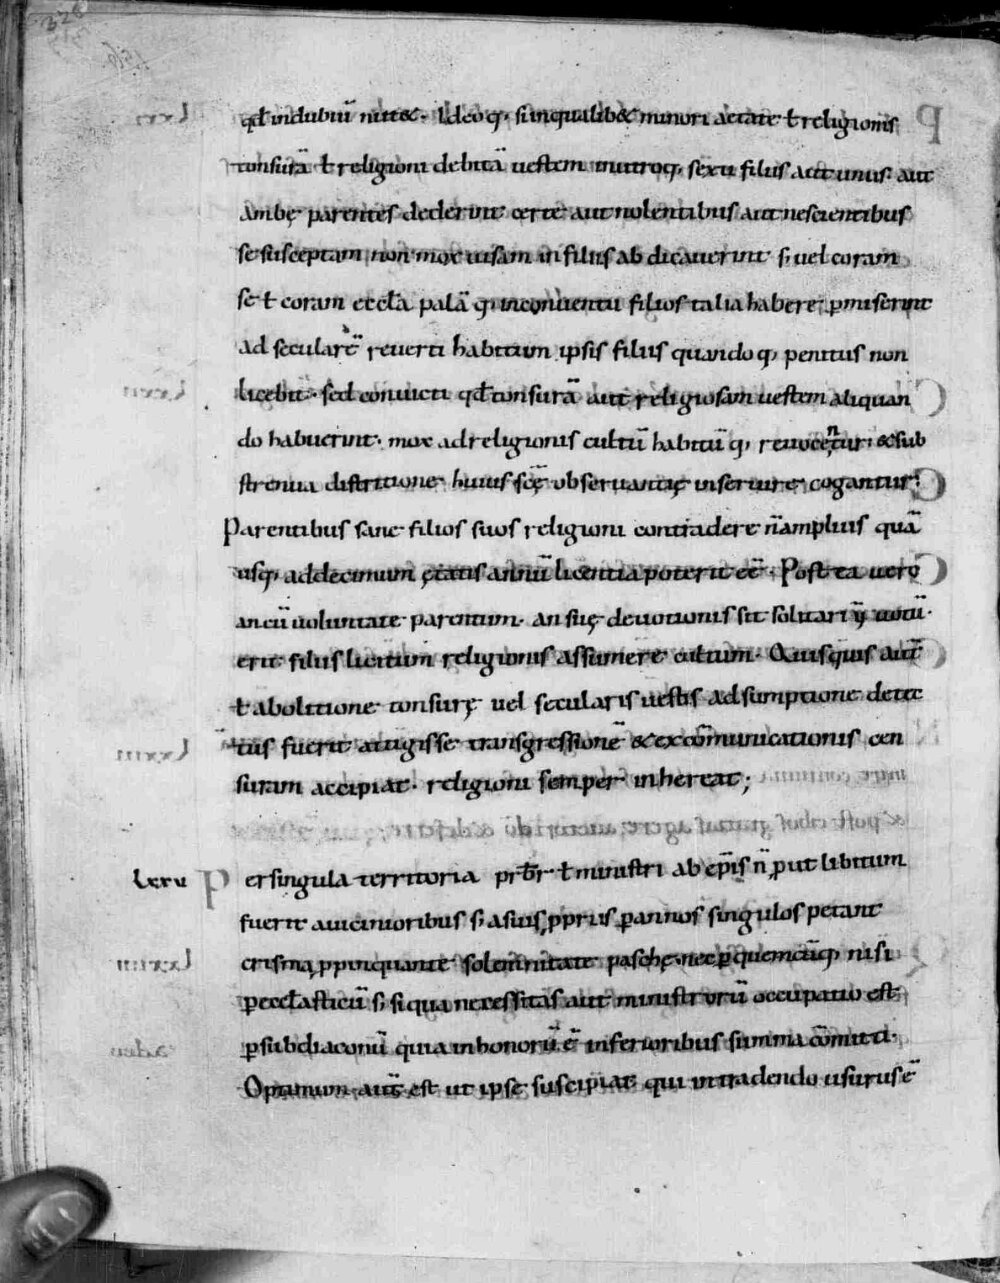 qđ indubiū nitt&. Ideoq; si inqualib& minori aetate ł religionis
tonsurā ł religioni debitā uestem inutroq; sexu filiis aut unus aut
ambę parentes dederint certe aut nolentibus aut nescientibus
se susceptam non mox uisam in filiis abdicauerint s; uel coram
se ł coram eccła palā q; inconuentu filios talia habere pmiserint
ad secularē reuerti habitum ipsis filiis quandoq; penitus non
licebit. sed conuicti qđ tonsurā aut religiosam uestem aliquan
do habuerint. mox adreligionis cultū habitūq; reuocentur. &sub
strenua distritione huius scę obseruantię inseruire cogantur.
Parentibus sane filios suos religioni contradere n̄ amplius quā
usq; addecimum ętatis annū licentia poterit eē. Postea uero
an cū uoluntate parentum. an suę deuotionis sit solitariū uotū.
erit filiis licitum religionis assumere cultum. Quisquis aut̄
ł abolitione tonsurę uel secularis uestis adsumptione detec
tus fuerit attigisse transgressionē &excōmunicationis cen
suram accipiat. religioni semper inhereat;
lxxv Per singula territoria prb̄r ł ministri ab ep̄is n̄ put libitum
fuerit auicinioribus s; asuis ppriis pannos singulos petant
crisma ppinquante solemnitate paschę. nec pquemcūq; nisi
peccłasticū s; siqua necessitas aut ministrorū occupatio est
psubdiaconū quia inhonorū ē inferioribus summa cōmitti.
Optimum aut̄ est ut ipse suscipiat qui intradendo usurus ē